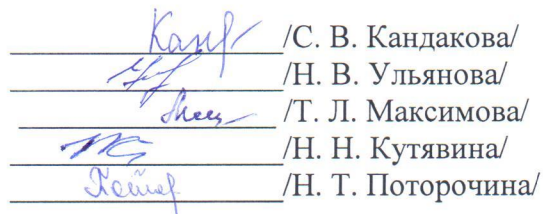 /С. В. Кандакова/
/Н. В. Ульянова/
/Т. Л. Максимова/
/Н. Н. Кутявина/
/Н. Т. Поторочина/